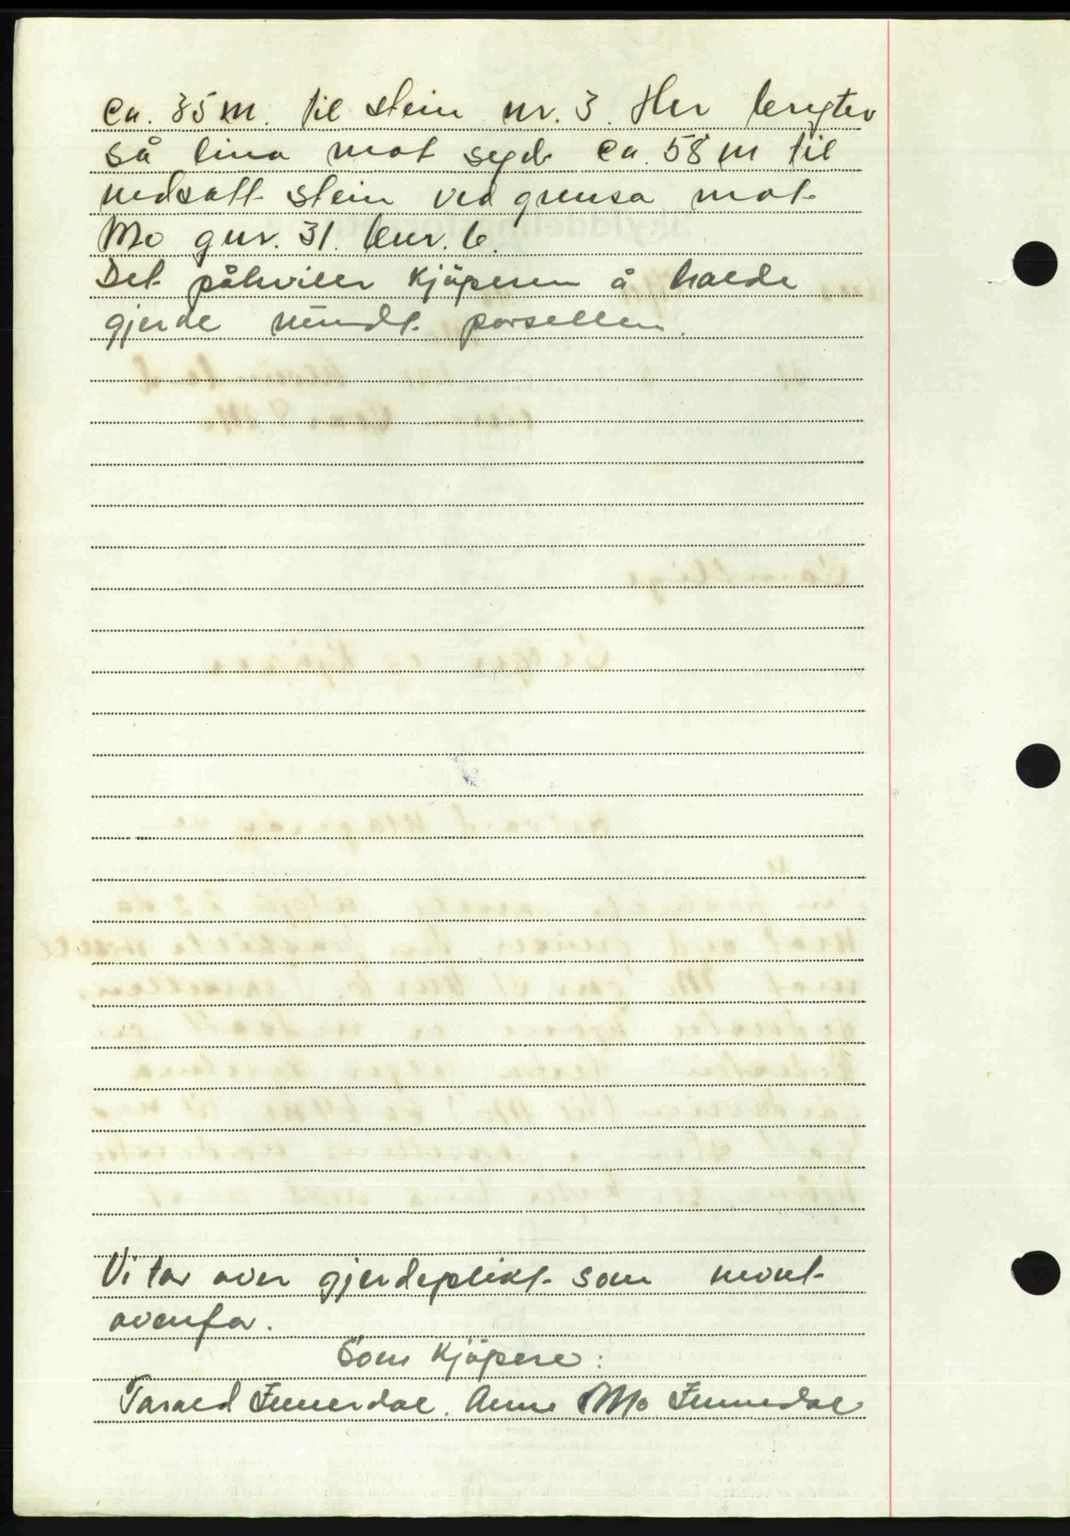 ca. 35 m. til stein nr. 3. Her bengter
så lina mot syd ca. 58 m til
nedsatt stein ved grensa mot
Mo gnr. 31. bnr. 6.
Det påhviler kjöperen å halde
gjerde rundt parsellen.
Vi tar over gjerdeplikt som nevnt
ovenfor.
Som kjöpere:
Tarald Innerdal. Anne Mo Innerdal